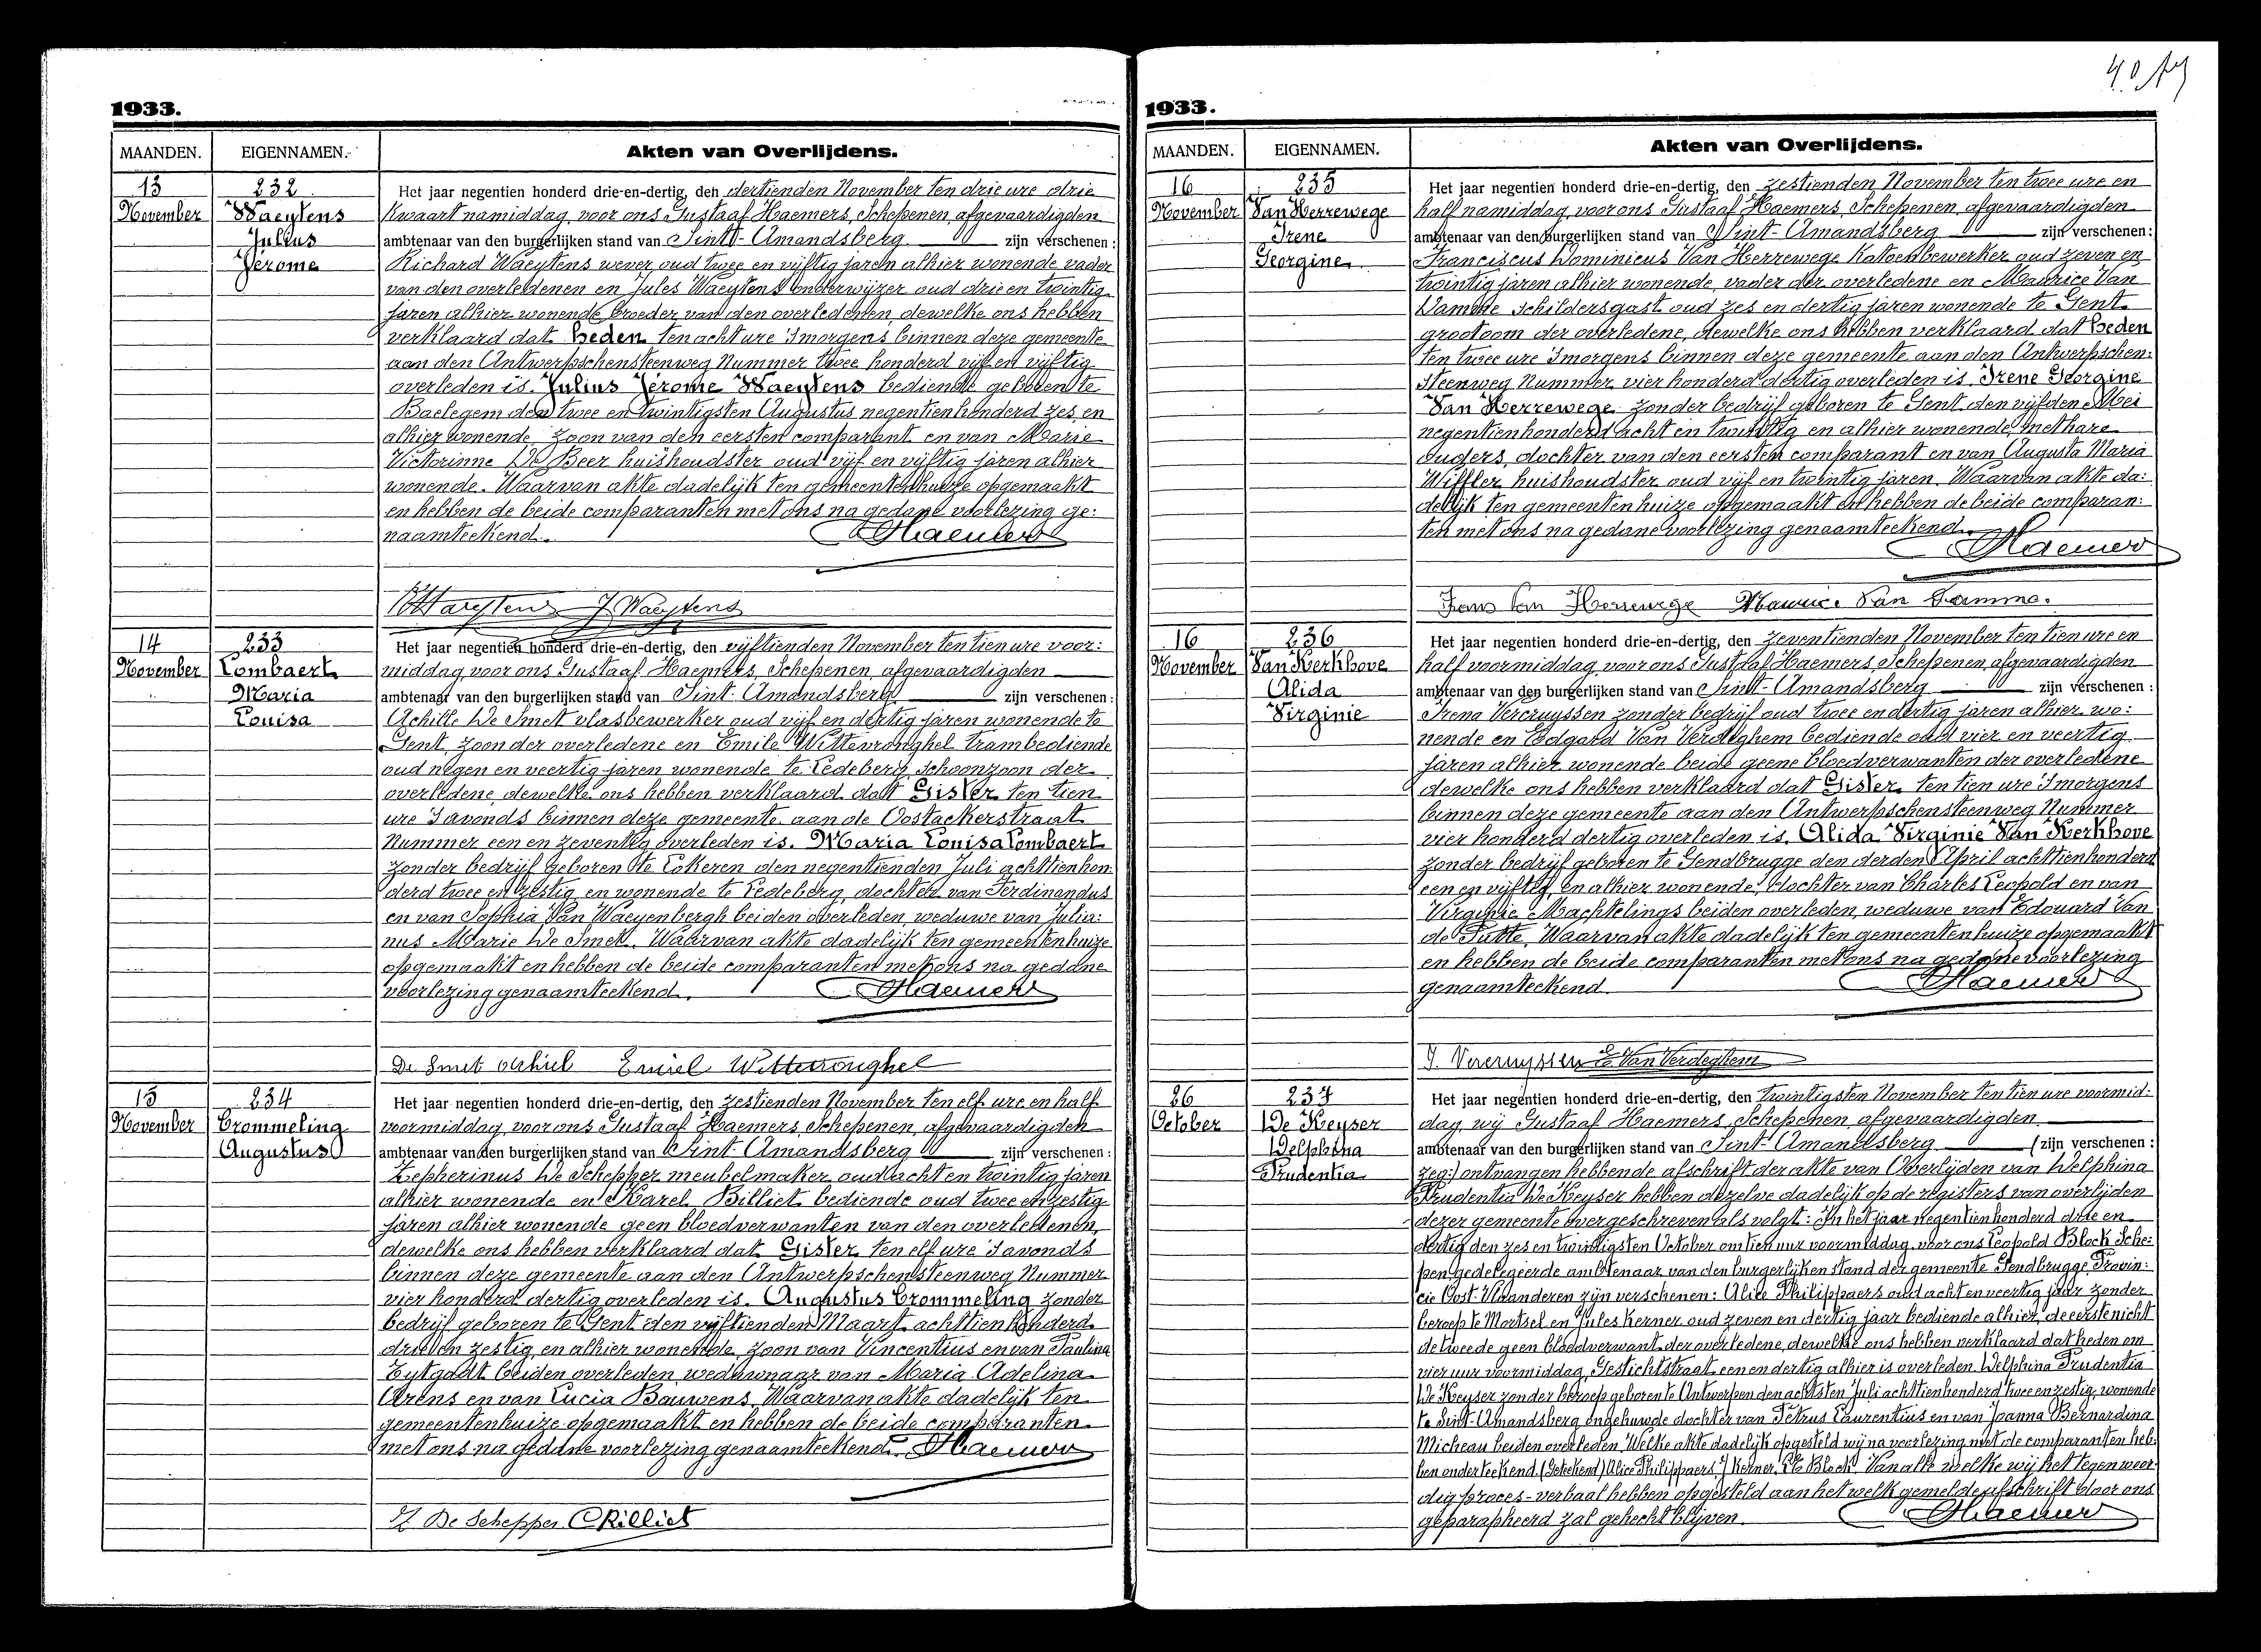 40
1933.
MAANDEN. EIGENNAMEN. Akten van Overlijdens.
13 November
232
Waeytens
Julius
Jérome
Het jaar negentien honderd drie-en-dertig, den dertienden November ten drie ure drie
kwaart namiddag, voor ons Gustaaf Haemers, Schepenen, afgevaardigden
ambtenaar van den burgerlijken stand van Sint-Amandsberg zijn verschenen:
Richard Waeytens wever oud twee en vijftig jaren alhier wonende vader
van den overledenen en Jules Waeytens onderwijzer oud drie en twintig
jaren alhier wonende, broeder van den overledenen, dewelke ons hebben
verklaard dat heden ten acht ure 's morgens binnen deze gemeente
aan den Antwerpschensteenweg Nummer twee honderd vijf en vijftig
overleden is. Julius Jérome Waeytens bediende geboren te
Baelegem den twee en twintigsten Augustus negentienhonderd zes, en
alhier wonende, zoon van den eersten comparant en van Marie
Victorinne De Beer huishoudster oud vijf en vijftig jaren alhier
wonende. Waarvan akte dadelijk ten gemeentenhuize opgemaakt
en hebben de beide comparanten met ons na gedane voorlezing ge:
naamteekend. Haemers
Waeytens J Waeytens
14 November
233
Lombaert
Maria
Louisa
Het jaar negentien honderd drie-en-dertig, den vijftienden November ten tien ure voor:
middag, voor ons Gustaaf Haemers, Schepenen, afgevaardigden
ambtenaar van den burgerlijken stand van Sint-Amandsberg zijn verschenen:
Achille De Smet vlasbewerker oud vijf en dertig jaren wonende te
Gent, zoon der overledene en Emile Wittevronghel trambediende
oud negen en veertig jaren wonende te Ledeberg, schoonzoon der
overledene, dewelke ons hebben verklaard dat Gister ten tien
ure 's avonds binnen deze gemeente aan de Oostackerstraat
Nummer een en zeventig overleden is. Maria Louisa Lombaert
zonder bedrijf geboren te Lokeren den negentienden Juli achttienhon:
derd twee en zestig, en wonende te Ledeberg, dochter van Ferdinandus
en van Sophia Van Waeyenbergh beiden overleden, weduwe van Julia:
nus Marie De Smet. Waarvan akte dadelijk ten gemeentenhuize
opgemaakt en hebben de beide comparanten met ons na gedane
voorlezing genaamteekend. Haemers
De Smet Achiel Emiel Wittevronghel
15 November
234
Crommeling
Augustus
Het jaar negentien honderd drie-en-dertig, den zestienden November ten elf ure en half
voormiddag, voor ons Gustaaf Haemers, Schepenen, afgevaardigden
ambtenaar van den burgerlijken stand van Sint-Amandsberg zijn verschenen:
Zepherinus De Schepper meubelmaker oud acht en twintig jaren
alhier wonende en Karel Billiet bediende oud twee en zestig
jaren alhier wonende geen bloedverwanten van den overledenen,
dewelke ons hebben verklaard dat Gister ten elf ure 's avonds
binnen deze gemeente aan den Antwerpschensteenweg Nummer
vier honderd dertig overleden is. Augustus Crommeling zonder
bedrijf geboren te Gent den vijftienden Maart achttienhonderd
drie en zestig, en alhier wonende, zoon van Vincentius en van Paulina
Eytgadt beiden overleden, weduwnaar van Maria Adelina
Arens en van Lucia Bauwens. Waarvan akte dadelijk ten
gemeentenhuize opgemaakt en hebben de beide comparanten
met ons na gedane voorlezing genaamteekend. Haemers
Z De Schepper C Billiet
1933.
MAANDEN. EIGENNAMEN. Akten van Overlijdens.
16 November
235
Van Herrewege
Irene
Georgine
Het jaar negentien honderd drie-en-dertig, den zestienden November ten twee ure en
half namiddag, voor ons Gustaaf Haemers, Schepenen, afgevaardigden
ambtenaar van den burgerlijken stand van Sint-Amandsberg zijn verschenen:
Franciscus Dominicus Van Herrewege katoenbewerker oud zeven en
twintig jaren alhier wonende, vader der overledene en Maurice Van
Damme schildersgast oud zes en dertig jaren wonende te Gent
grootoom der overledene, dewelke ons hebben verklaard dat heden
ten twee ure 's morgens binnen deze gemeente aan den Antwerpschen:
steenweg Nummer vier honderd dertig overleden is. Irene Georgine
Van Herrewege zonder bedrijf geboren te Gent den vijfden Mei
negentienhonderd acht en twintig en alhier wonende, met hare
ouders, dochter van den eersten comparant en van Augusta Maria
Wiffler huishoudster oud vijf en twintig jaren. Waarvan akte da:
delijk ten gemeentenhuize opgemaakt en hebben de beide comparan:
ten met ons na gedane voorlezing genaamteekend. Haemers
Frans Van Herrewege Mauric. Van Damme.
16 November
236
Van Kerkhove
Alida
Virginie
Het jaar negentien honderd drie-en-dertig, den zeventienden November ten tien ure en
half voormiddag, voor ons Gustaaf Haemers, Schepenen, afgevaardigden
ambtenaar van den burgerlijken stand van Sint-Amandsberg zijn verschenen:
Irena Vercruyssen zonder bedrijf oud twee en dertig jaren alhier wo:
nende en Edgard Van Verdeghem bediende oud vier en veertig
jaren alhier wonende beide geene bloedverwanten der overledene
dewelke ons hebben verklaard dat Gister ten tien ure 's morgens
binnen deze gemeente aan den Antwerpschensteenweg Nummer
vier honderd dertig overleden is. Alida Virginie Van Kerkhove
zonder bedrijf geboren te Gendbrugge den derden April achttienhonderd
een en vijftig, en alhier wonende, dochter van Charles Leopold en van
Virginie Machtelings beiden overleden, weduwe van Edouard Van
de Putte. Waarvan akte dadelijk ten gemeentenhuize opgemaakt
en hebben de beide comparanten met ons na gedane voorlezing
genaamteekend. Haemers
J. Vercruyssen E Van Verdeghem
26 October
237
De Keyser
Delphina
Prudentia
Het jaar negentien honderd drie-en-dertig, den twintigsten November ten tien ure voormid:
dag, wij Gustaaf Haemers, Schepenen, afgevaardigden
ambtenaar van den burgerlijken stand van Sint-Amandsberg (zijn verschenen:
zeg:) ontvangen hebbende afschrift der akte van Overlijden van Delphina
Prudentia De Keyser hebben dezelve dadelijk op de registers van overlijden
dezer gemeente overgeschreven als volgt: In het jaar negentienhonderd drie en
dertig den zes en twintigsten October om tien uur voormiddag, voor ons Leopold Block Sche:
pen, gedelegeerde ambtenaar van den burgerlijken stand der gemeente Gendbrugge, Provin:
cie Oost-Vlaanderen zijn verschenen: Alice Philippaers oud acht en veertig jaar zonder
beroep te Mortsel en Jules Kerner oud zeven en dertig jaar bediende alhier, de eerste nicht
de tweede geen bloedverwant der overledene, dewelke ons hebben verklaard dat heden om
vier uur voormiddag, Gestichtstraat een en dertig alhier is overleden Delphina Prudentia
De Keyser zonder beroep geboren te Antwerpen den achtsten Juli achttienhonderd twee en zestig, wonende
te Sint-Amandsberg ongehuwde dochter van Petrus Laurentius en van Joanna Bernardina
Micheau beiden overleden. Welke akte dadelijk opgesteld wij na voorlezing met de comparanten heb:
ben onderteekend. (Geteekend) Alice Philippaers, J Kerner, Block. Van alle welke wij het tegenwoor:
dig proces-verbaal hebben opgesteld aan het welk gemelde afschrift door ons
geparapheerd zal gehecht blijven. Haemers